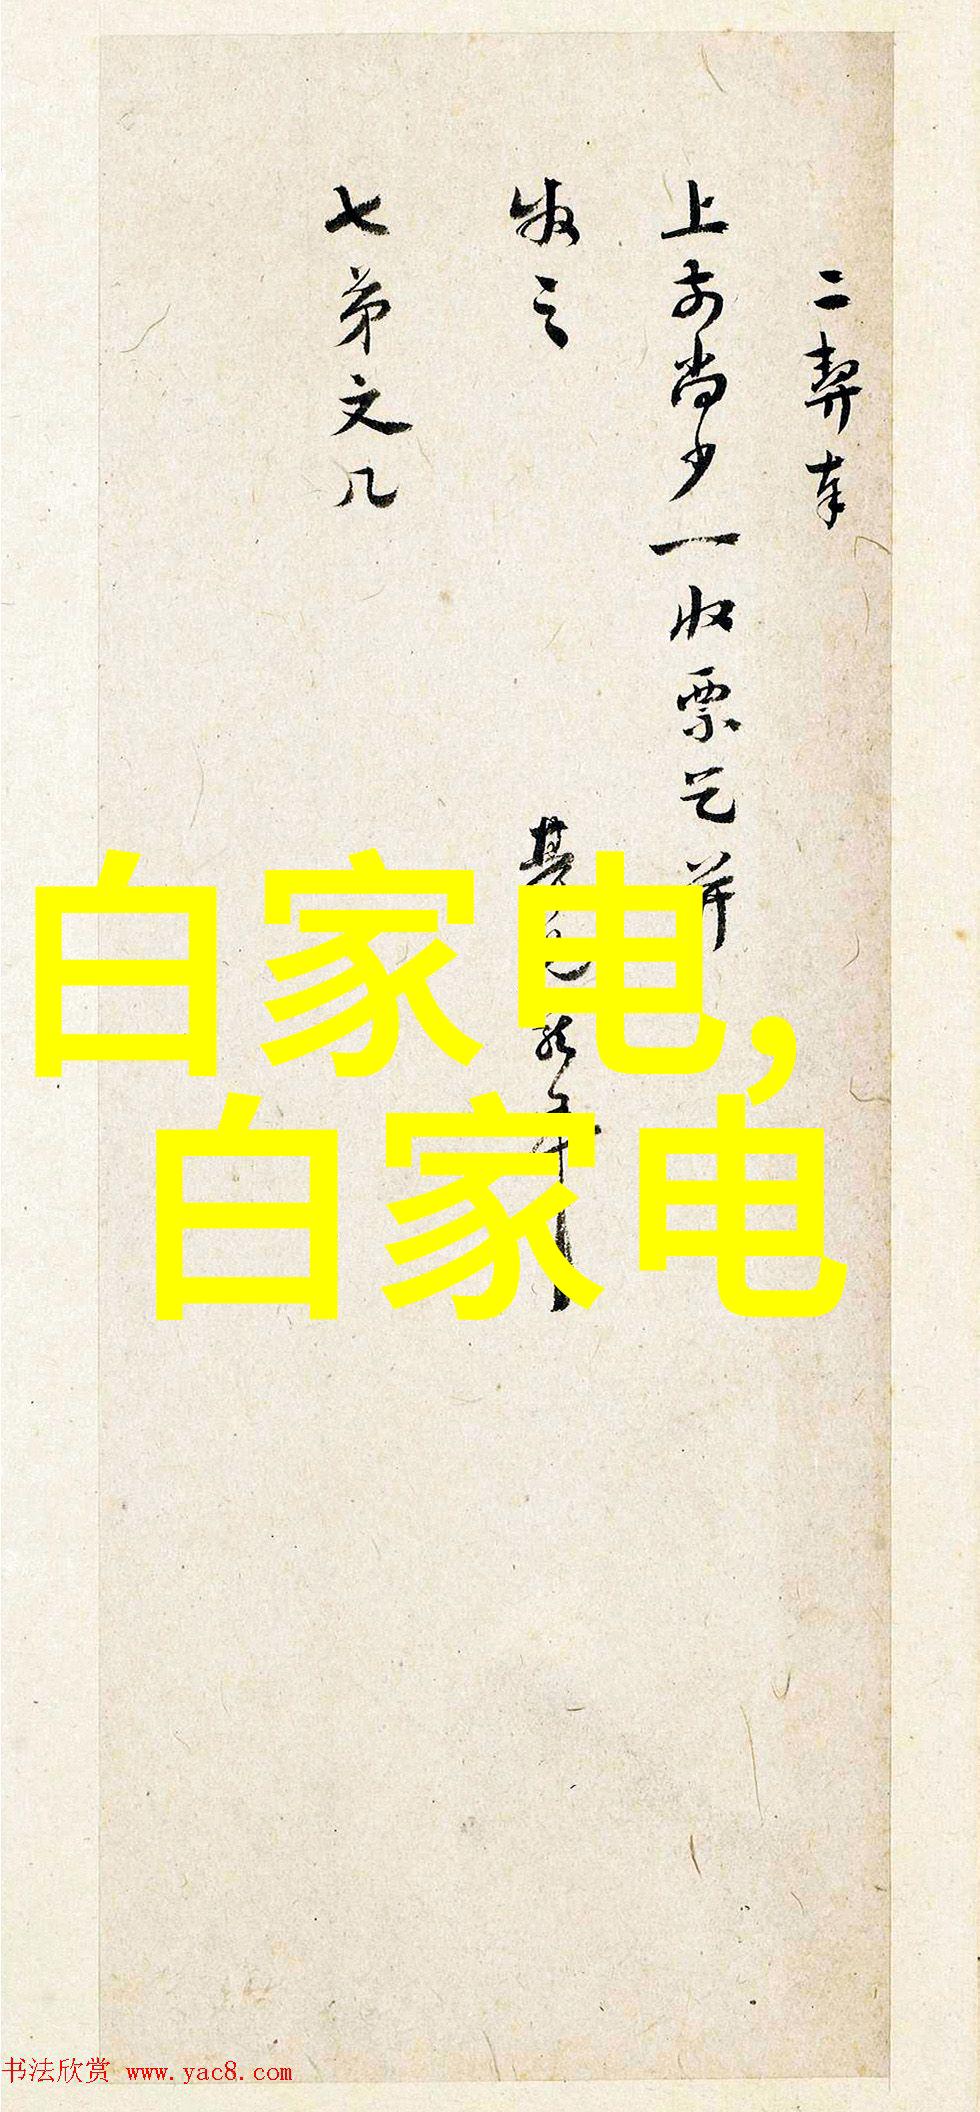 二契奉
上前尚少一收票乞并
收之
七弟文几
白家电,
白家电
书法欣赏 www.yac8.com